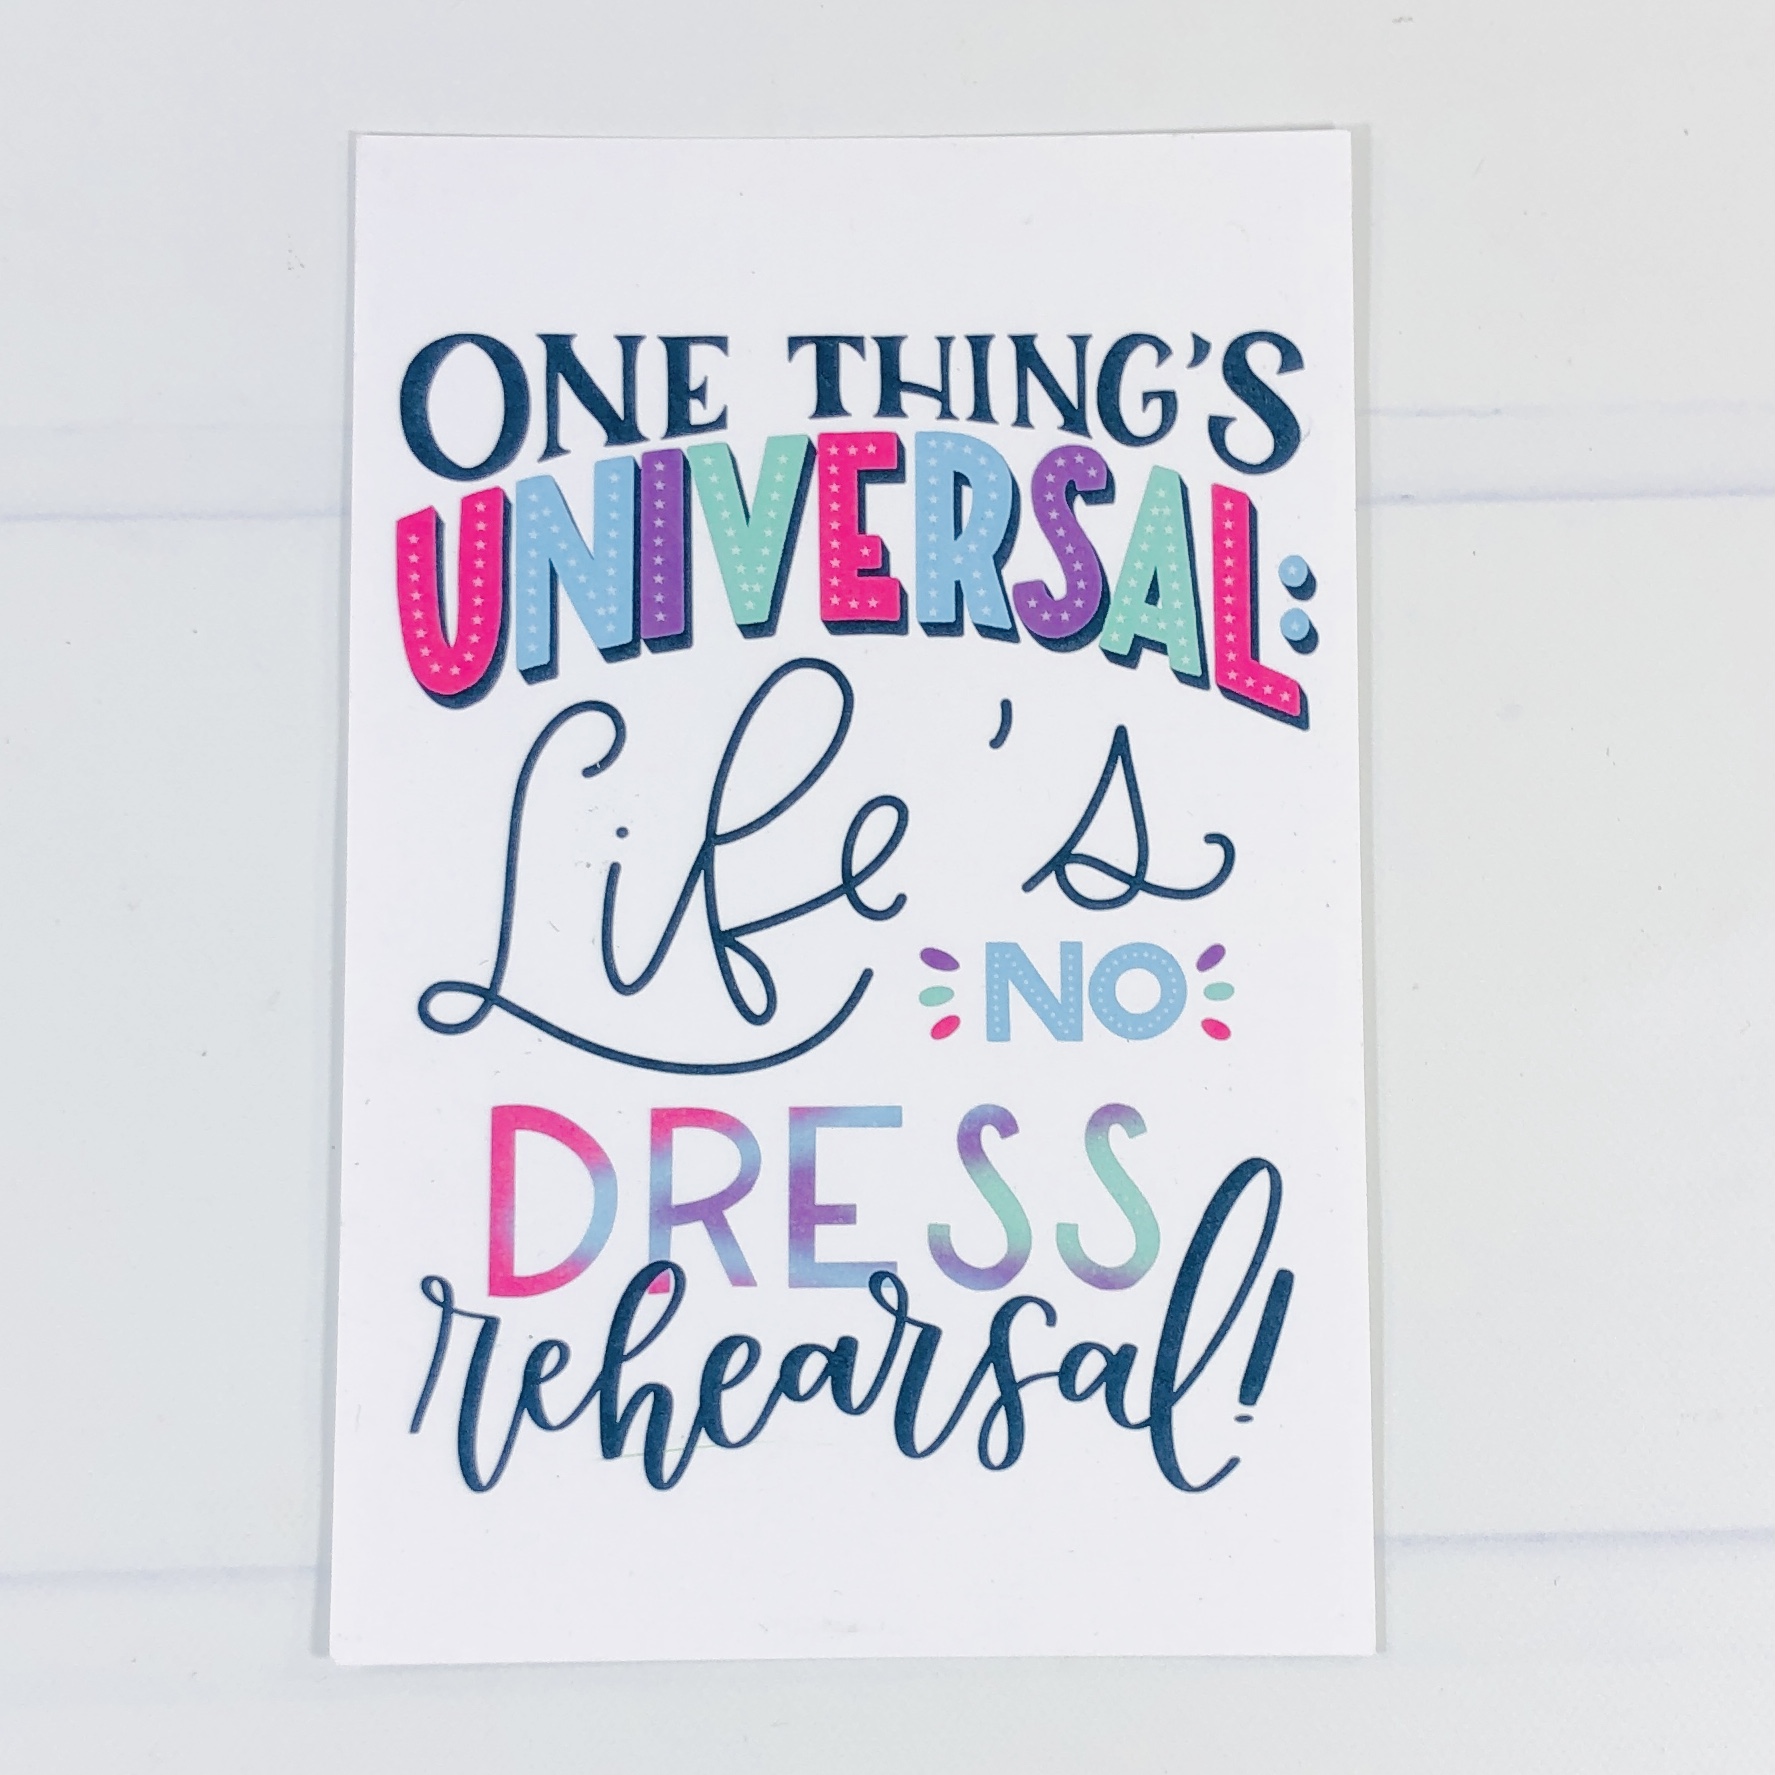 ONE THING'S
UNIVERSAL:
Life's
NO
DRESS
rehearsal!